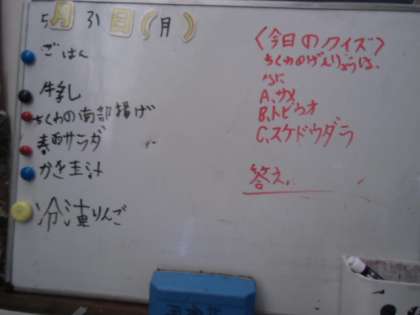 5月31日(月)
ごはん
牛乳
ちくわの南部揚げ
サラダ
かき玉汁
冷凍りんご
〈今日のクイズ〉
ちくわのげんりょうは、
なに
A、サメ
B、トビウオ
C、スケトウダラ
答え、